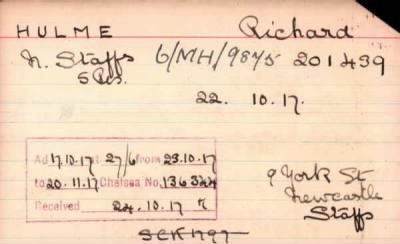 HULME Richard
N. Staffs 6/MH/9875 201439
5 Res.
22. 10. 17.
Ad 17.10.17 at 27/6 from 23.10.17
to 20.11.17 Chelsea No. 136324
Received 24.10.17
9 York St
Newcastle
Staffs
SCK1797